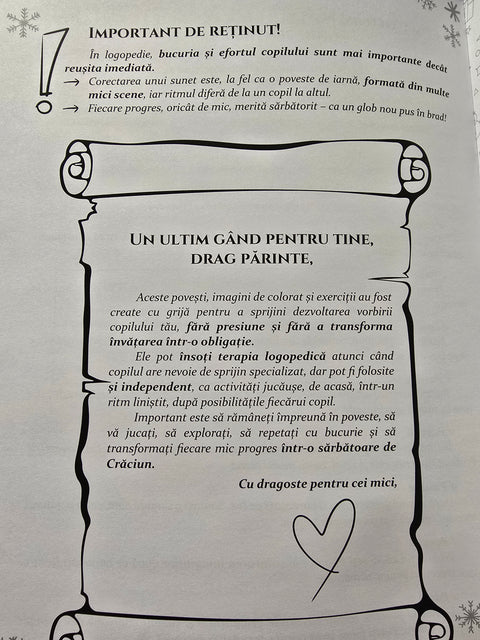 IMPORTANT DE REȚINUT!
În logopedie, bucuria și efortul copilului sunt mai importante decât
reușita imediată.
→ Corectarea unui sunet este, la fel ca o poveste de iarnă, formată din multe
mici scene, iar ritmul diferă de la un copil la altul.
→ Fiecare progres, oricât de mic, merită sărbătorit – ca un glob nou pus în brad!
UN ULTIM GÂND PENTRU TINE,
DRAG PĂRINTE,
Aceste povești, imagini de colorat și exerciții au fost
create cu grijă pentru a sprijini dezvoltarea vorbirii
copilului tău, fără presiune și fără a transforma
învățarea într-o obligație.
Ele pot însoți terapia logopedică atunci când
copilul are nevoie de sprijin specializat, dar pot fi folosite
și independent, ca activități jucăușe, de acasă, într-un
ritm liniștit, după posibilitățile fiecărui copil.
Important este să rămâneți împreună în poveste, să
vă jucați, să explorați, să repetați cu bucurie și să
transformați fiecare mic progres într-o sărbătoare de
Crăciun.
Cu dragoste pentru cei mici,